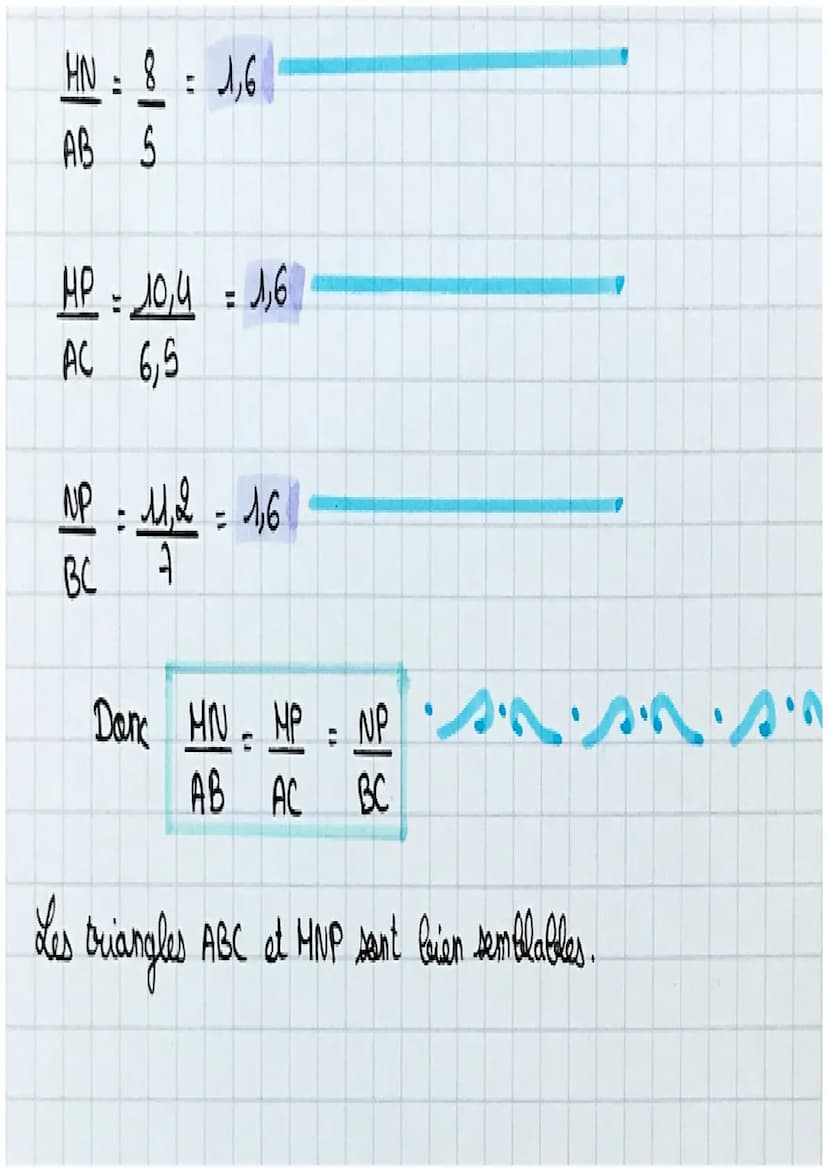 MN = 8 = 1,6
AB 5
MP = 10,4 = 1,6
AC 6,5
NP = 11,2 = 1,6
BC 7
Donc MN = MP = NP
AB AC BC
Les triangles ABC et MNP sont bien semblables.